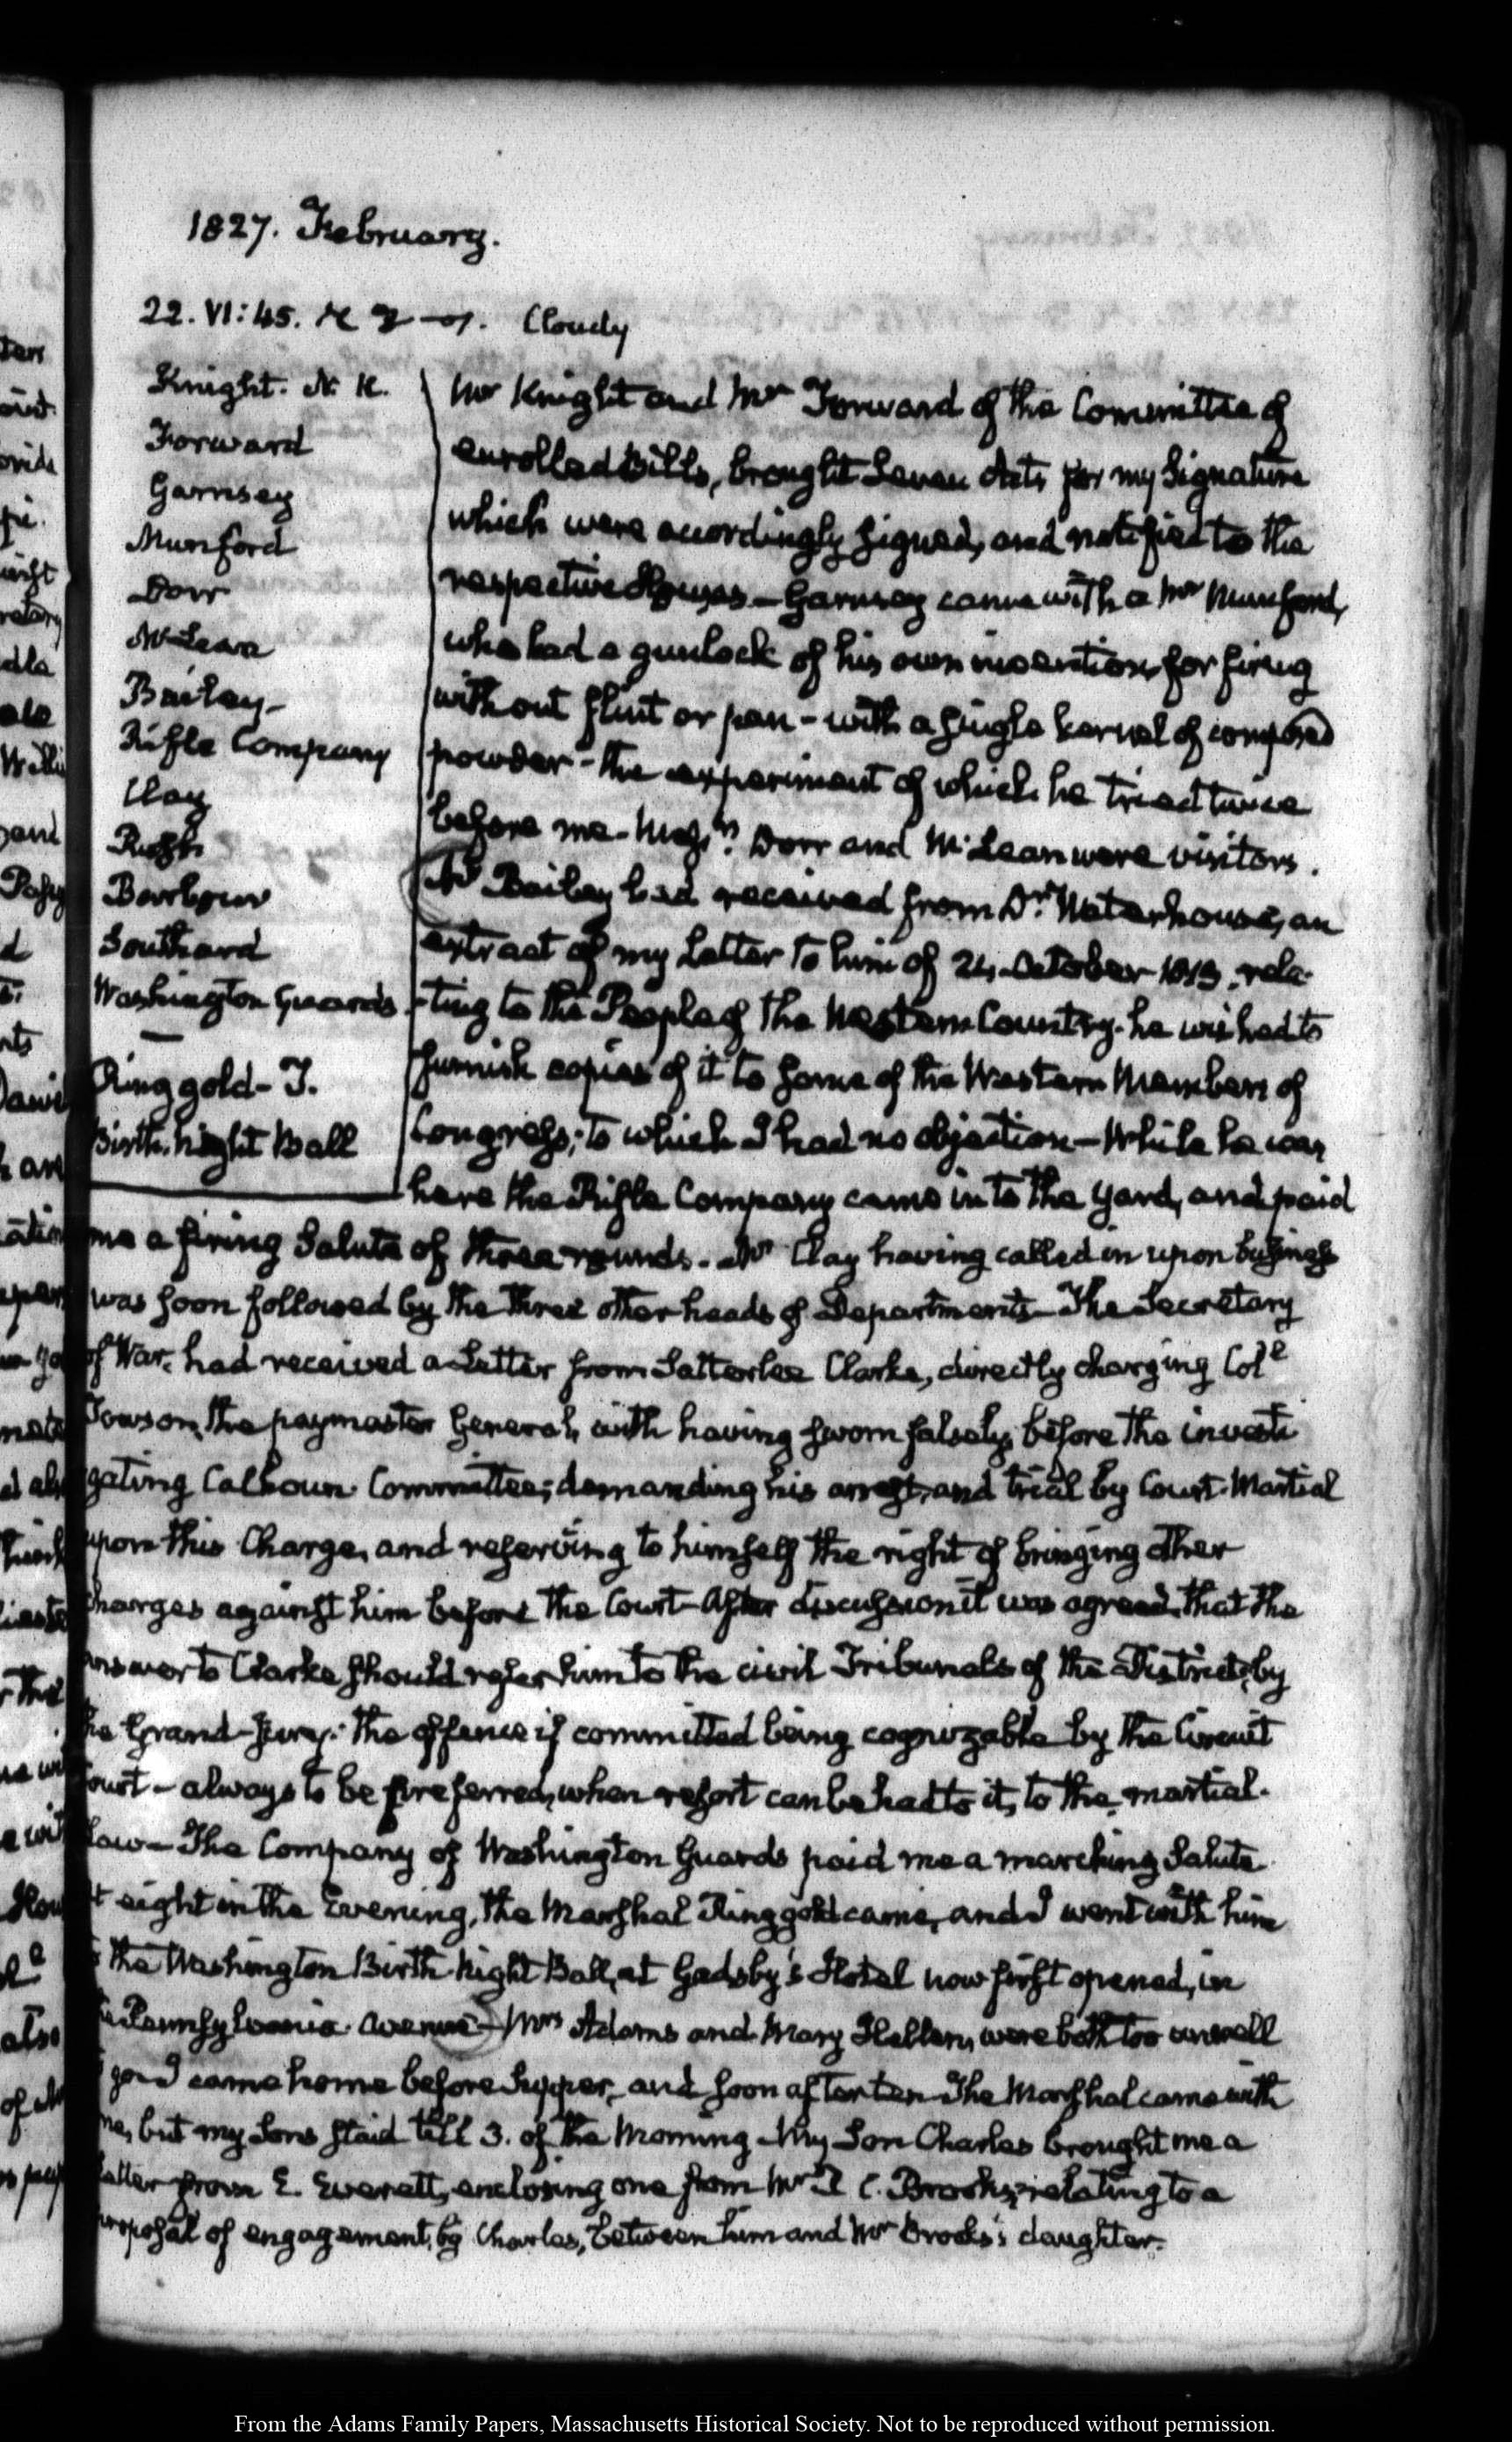 1827. February.
22. VI:45. Cloudy
Knight. N. R.
Forward
Garnsey
Munford
Dorr
McLean
Bailey
Rifle Company
Clay
Rush
Barbour
Southard
Washington Guards
Ringgold- T.
Birth-night Ball
Mr Knight and Mr Forward of the Committee of
enrolled Bills, brought Seven Acts for my Signature
which were accordingly signed, and notified to the
respective Houses – Garnsey came with a Mr Munford,
who had a gunlock of his own invention for firing
without flint or pan – with a single kernel of composed
powder – the experiment of which he tried twice
before me – Messrs. Dorr and McLean were visitors.
Mr Bailey had received from Dr. Waterhouse, an
extract of my Letter to him of 24 October 1813. rela-
ting to the People of the Western Country. he wished to
furnish copies of it to some of the Western Members of
Congress; to which I had no objection – While he was
here the Rifle Company came into the yard, and paid
me a firing Salute of three rounds. Mr Clay having called in upon business
was soon followed by the three other heads of Departments – The Secretary
of War, had received a Letter from Satterlee Clarke, directly charging Coll
Towson, the paymaster General, with having sworn falsely before the investi
gating Calhoun Committee; demanding his arrest, and trial by Court-Martial
upon this Charge, and reserving to himself the right of bringing other
charges against him before the Court – After discussion it was agreed, that the
answer to Clarke should refer him to the civil Tribunals of the District, by
the Grand-Jury: the offence if committed being cognizable by the Circuit
Court – always to be preferred, when resort can be had to it, to the martial
law – The Company of Washington Guards paid me a marching Salute.
At eight in the Evening, the Marshal Ringgold came, and I went with him
to the Washington Birth-night Ball, at Gadsby's Hotel now first opened, in
the Pennsylvania Avenue – Mrs Adams and Mary Hellen, were both too unwell
I came home before Supper, and soon after ten – The Marshal came with
me, but my Sons staid till 3. of the Morning – My Son Charles brought me a
Letter from E. Everett, enclosing one from Mr P. C. Brooks, relating to a
proposal of engagement, by Charles, between him and Mr Brooks's daughter.
From the Adams Family Papers, Massachusetts Historical Society. Not to be reproduced without permission.